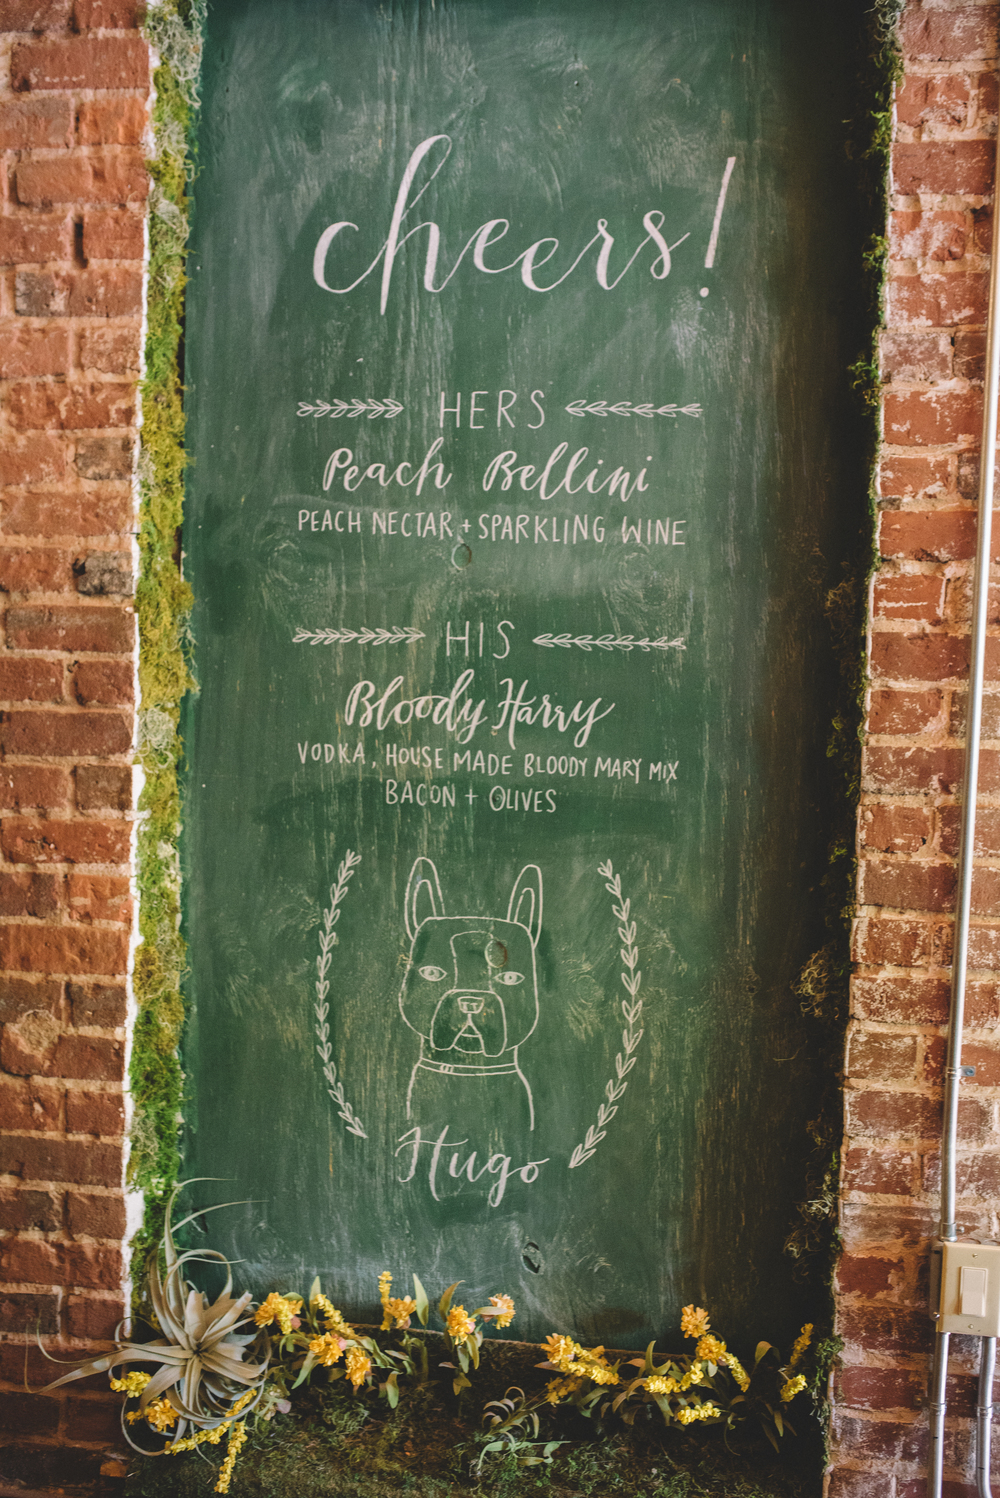 cheers!
HERS
Peach Bellini
PEACH NECTAR + SPARKLING WINE
HIS
Bloody Harry
VODKA, HOUSE MADE BLOODY MARY MIX
BACON + OLIVES
Hugo